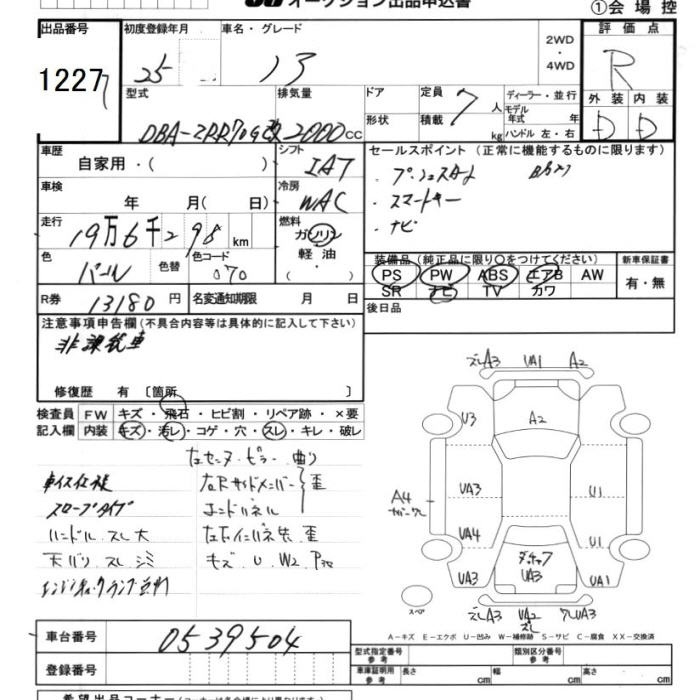 オークション出品申込書
①会場控
出品番号
初度登録年月
車名・グレード
2WD
・
4WD
評価点
12277
25
13
R
型式
排気量
ドア
定員
7人
ディーラー・並行
外装
内装
形状
積載
kg
モデル年式 年
ハンドル 左・右
D
D
DBA-ZRR70G改
2000cc
車歴
自家用・( )
シフト
IAT
セールスポイント (正常に機能するものに限ります)
・プッシュスタート
・スマートキー
・ナビ
車検
年 月( 日)
冷房
WAC
走行
19万6千298 km
燃料
ガソリン
軽油
色
パール
色替
色コード
070
装備品 (純正品に限り○をつけてください)
新車保証書
PS PW ABS エアB AW
有・無
SR ナビ TV カワ
R券
13180円
名変通知期限 月 日
後日品
注意事項申告欄 (不具合内容等は具体的に記入して下さい)
非課税車
修復歴 有 〔箇所 〕
検査員
記入欄
FW キズ・飛石・ヒビ割・リペア跡・×要
内装 キズ・汚レ・コゲ・穴・スレ・キレ・破レ
左センターピラー曲り
車イス仕様
左Rサイドメンバー 歪
スロープタイプ
エンドパネル
ハンドル スレ大
左Fインパネ先 歪
天バリ スレ シミ
キズ U W2 P
エンジンチェックランプ点灯
スレA3 UA1 A2
U3
A2
A4
UA3
U1
UA4
U1
UA3
UA3
UA1
スレA3 UA2 スレ ワレUA3
スペア
A-キズ E-エクボ U-凹み W-補修跡 S-サビ C-腐食 XX-交換済
車台番号
0539504
登録番号
型式指定番号
参考
類別区分番号
参考
車庫証明用
参考
長さ cm
幅 cm
高さ cm
希望出品コーナー